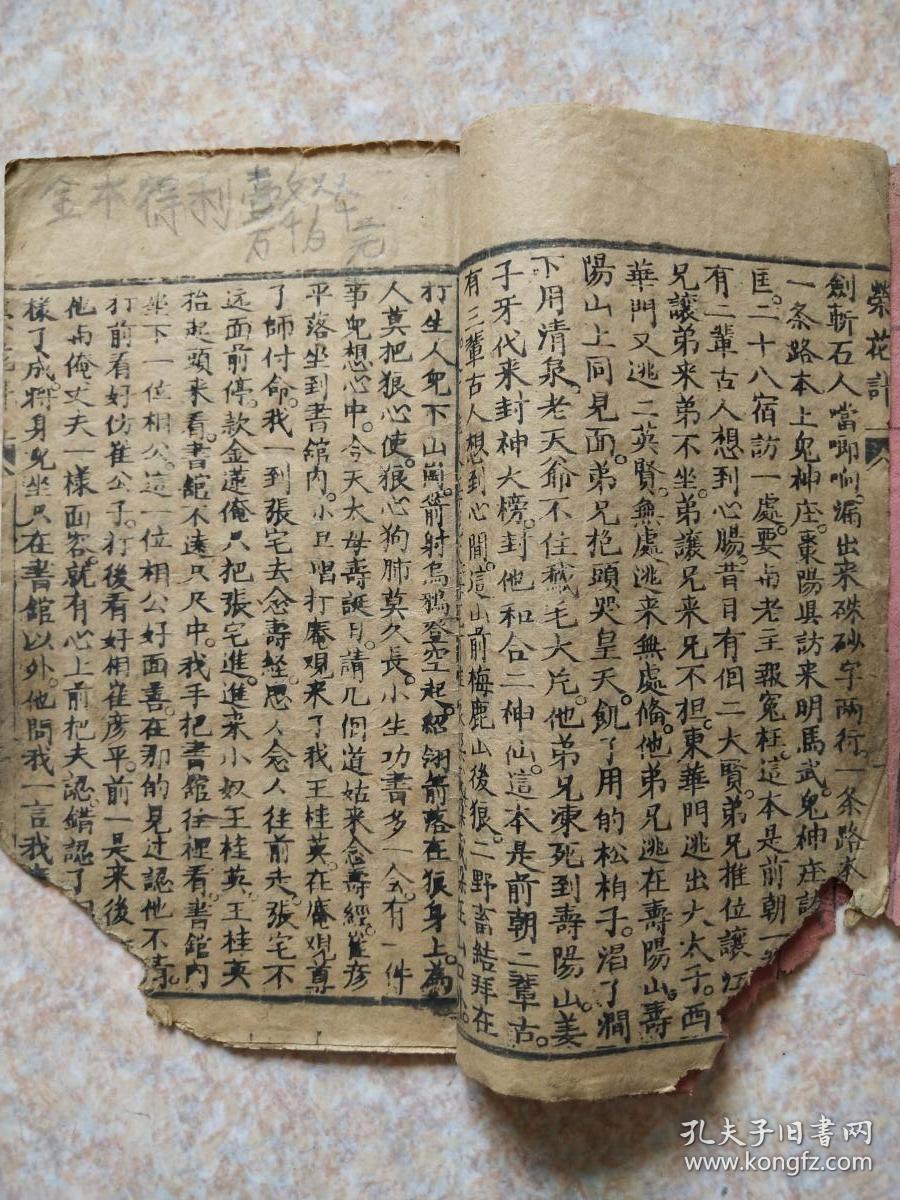 榮花計
劍斬石人當啷响。漏出来硃砂字兩行。一条路本
一条路本上鬼神庄。棗陽县訪来明馬武。鬼神庄訪
匡。二十八宿訪一處。要与老主報冤枉。這本是前朝一
有二輩古人想到心腸。昔日有個二大賢。弟兄推位讓江
兄讓弟来弟不坐。弟讓兄来兄不担。東華門逃出大太子。西
華門又逃二英賢。無處逃来無處偹。他弟兄逃在壽陽山。壽
陽山上同見面。弟兄抱頭哭皇天。飢了用的松柏子。渴了澗
下用清泉。老天爺不住鵝毛大片。他弟兄凍死到壽陽山。姜
子牙代来封神大榜。封他和合二神仙。這本是前朝二輩古。
有三輩古人想到心間。這山前梅鹿山後狼。二野畜結拜在
打生人兒下山崗。箭射烏鴉登空起。絕翎箭落在狼身上。為
人莫把狼心使。狼心狗肺莫久長。小生功書多一会。有一件
事兒想心中。今天太母壽誕日。請几個道姑来念壽經。崔彥
平落坐到書舘內。小旦唱打庵观来了我王桂英。在庵观尊
了師付命。我一到張宅去念壽経。思人念人往前走。張宅不
远面前停。款金蓮俺只把張宅進。進来小奴王桂英。王桂英
抬起頭来看。書舘不遠只尺中。我手把書舘往裡看。書舘內
坐下一位相公。這一位相公好面善。在那的見过認他不清。
打前看好仿崔公子。打後看好相崔彥平。前一是来後
他与俺丈夫一樣面容。就有心上前把夫認。錯認了
樣了成。将身兒坐只在書舘以外。他問我一言我
金木得利壹
万
元
孔夫子旧书网
www.kongfz.com